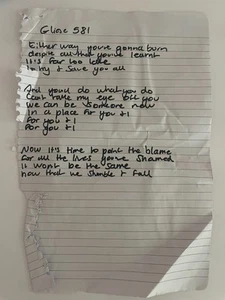 Gliese 581
Either way you're gonna burn
despite all that you've learnt
It's far too late
to try & save you all
And you'll do what you do
Can't take my eye off you
We can be someone now
In a place for you & I
For you & I
For you & I
Now it's time to point the blame
For all the lives you've shamed
It won't be the same
now that we stumble & fall